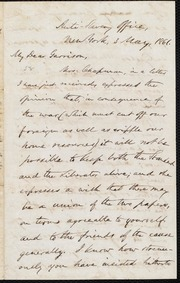 Anti-Slavery Office,
New York, 2 May, 1861.
My Dear Garrison,
Mrs. Chapman, in a letter
I have just received, expresses the
opinion that, in consequence of
the war (which must cut off our
foreign as well as our
home resources) it will not be
possible to keep both the Standard
and the Liberator alive; and she
expresses a wish that there may
be a union of the two papers,
on terms agreeable to yourself
and to the friends of the cause
generally. I know how strenu-
ously you have insisted hitherto